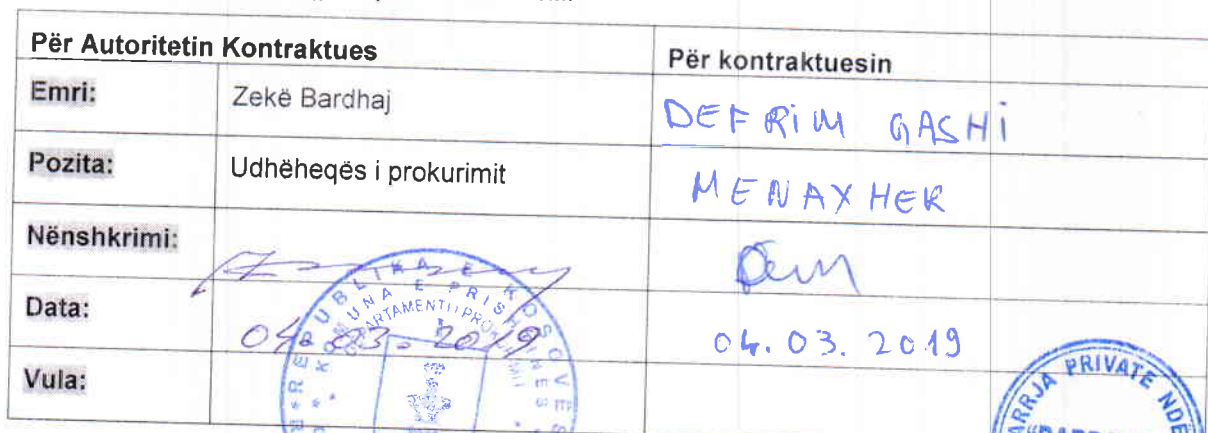 Për Autoritetin Kontraktues Për kontraktuesin
Emri: Zekë Bardhaj DEFRIM GASHI
Pozita: Udhëheqës i prokurimit MENAXHER
Nënshkrimi:
Data: 04.03.2019 04.03.2019
Vula:
REPUBLIKA E KOSOVËS
KOMUNA E PRISHTINËS
DEPARTAMENTI I PROKURIMIT
PRIVATE